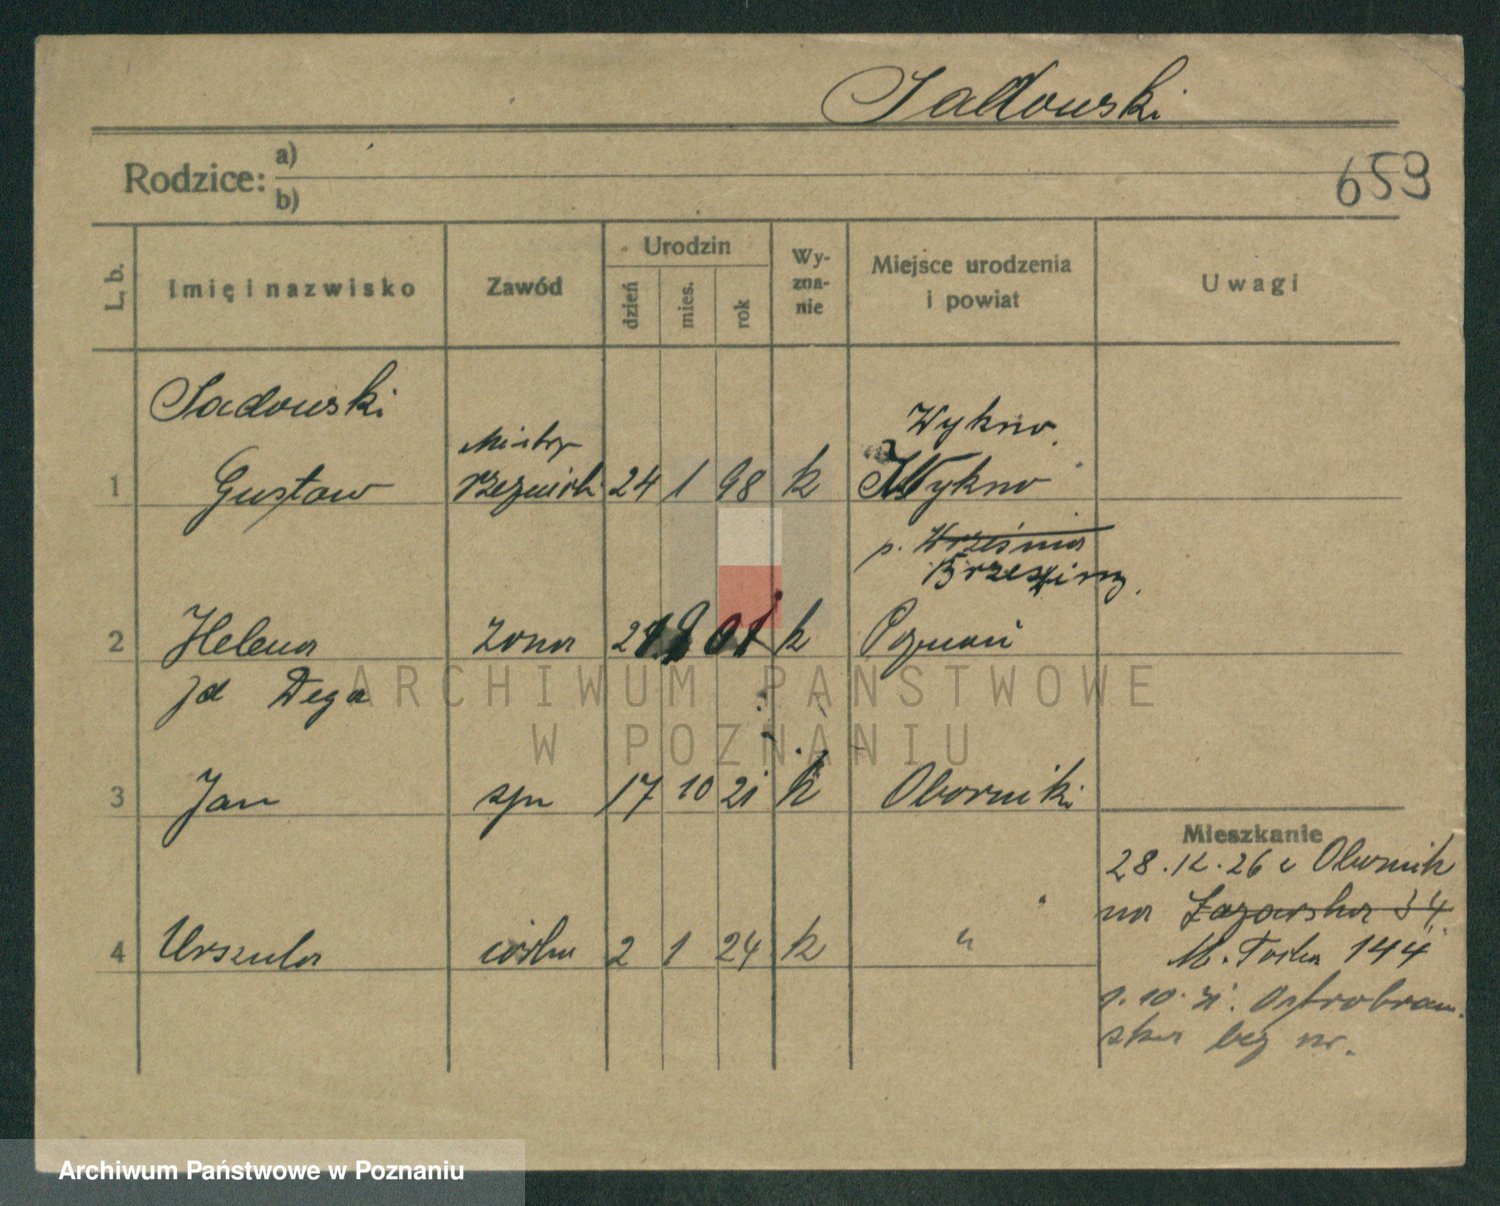 Sadowski
Rodzice: a)
b)
659
L. b.
Imię i nazwisko
Zawód
Urodzin
dzień
mies.
rok
Wy-
zna-
nie
Miejsce urodzenia
i powiat
Uwagi
Sadowski
Wykno
Mistrz
1 Gustaw rzeźnicki 24 1 98 k Wykno
p. Września
Brzeziny
2 Helena żona k Poznań
zd Dega
ARCHIWUM PAŃSTWOWE
W POZNANIU
3 Jan syn 17 10 21 k Oborniki
Mieszkanie
28.12.26 z Obornik
na Łazarska 34
4 Urszula córka 2 1 24 k "
M. Focha 144
10. 31. Ostrobram
ska bez nr.
Archiwum Państwowe w Poznaniu